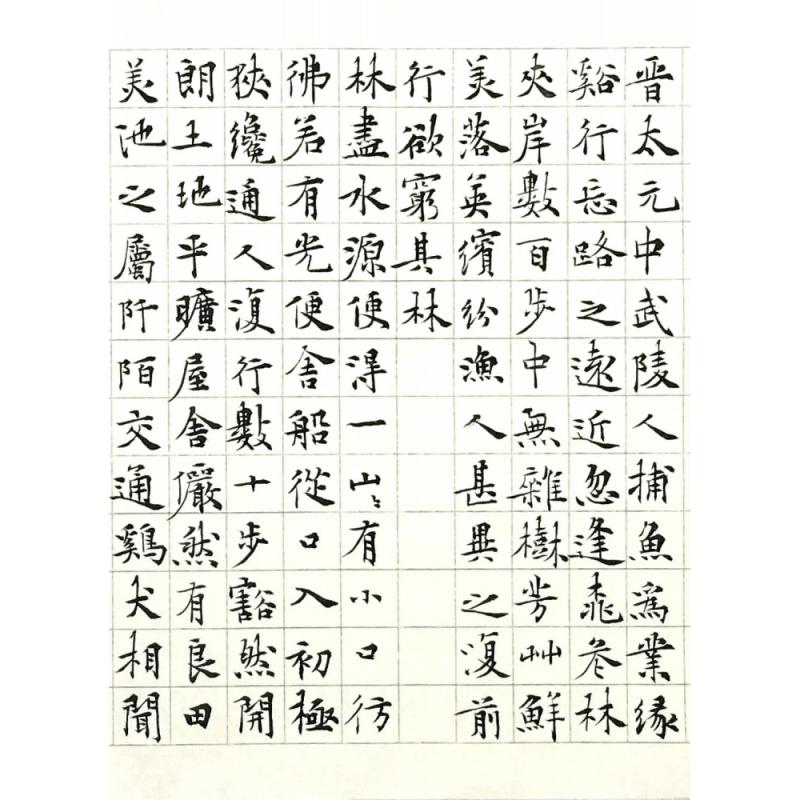 晋太元中武陵人捕魚為業緣
谿行忘路之遠近忽逢桃花林
夾岸數百步中無雜樹芳艸鮮
美落英繽紛漁人甚異之復前
行欲窮其林
林盡水源便得一山〻有小口彷
彿若有光便舍船從口入初極
狹纔通人復行數十步豁然開
朗土地平曠屋舍儼然有良田
美池之屬阡陌交通鷄犬相聞